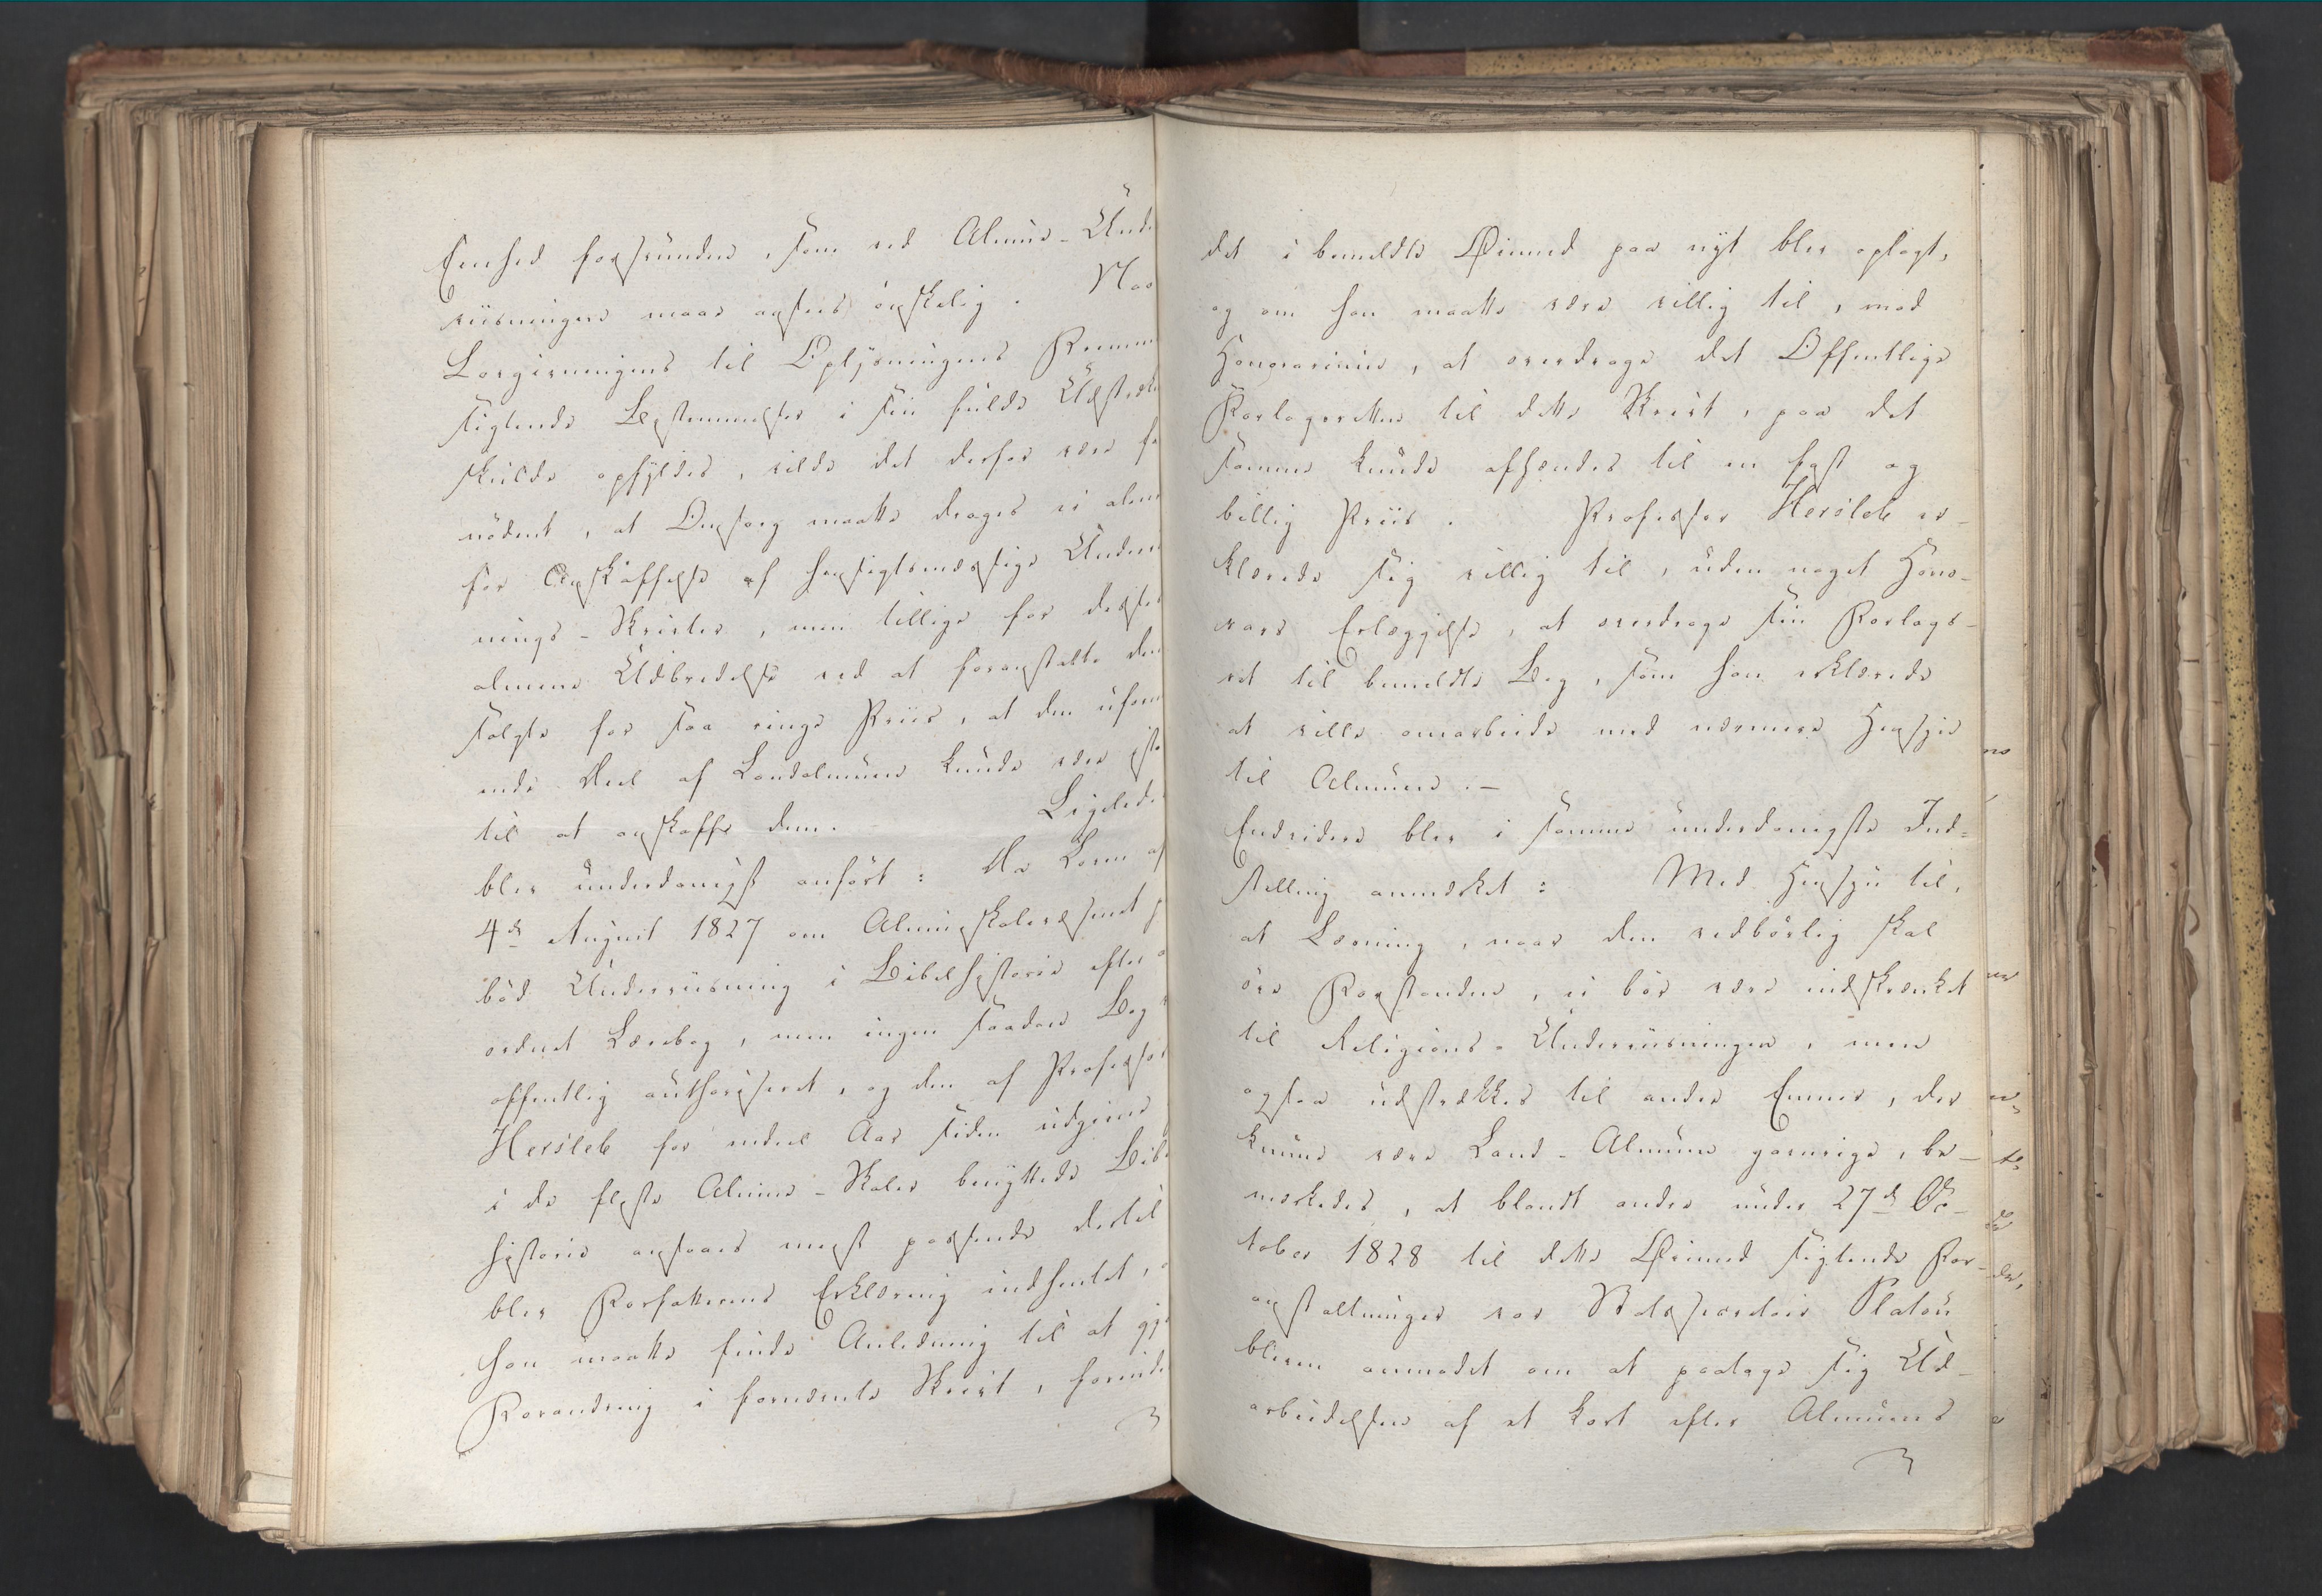 Eenhed forsvinder, som ved Almue-Unde
viisningen maae ansees ønskelig. Naa
Lovgivningens til Oplysningens Fremme
sigtende Bestemmelser i sin fulde Udstræk
skulde opfyldes, vilde det derfor være fo
nödent, at Omsorg maatte drages ei alene
for Anskaffelse af hensigtsmæssige Underv
nings-Skrifter, men tillige for disses
almene Udbredelse ved at foranstalte dem
solgte for saa ringe Priis, at den uform
ende Deel af Landalmuen kunde være ista
til at anskaffe dem. Ligeledes
blev underdanigst anført: Da Loven af
4de August 1827 om Almueskolevæsenet p
bød Underviisning i Bibelhistorie efter a
ordnet Lærebog, men ingen saadan Bog
offentlig authoriseret, og den af Professor
Hersleb for endeel Aar siden udgivne
i de fleste Almue-Skoler benyttede Bibel
historie ansaaes meest passende dertil
blev Forfatterens Erklæring indhentet, o
han maatte finde Anledning til at gjø
Forandring i fornævnte Skrivt, forinden
det i bemeldte Øiemed paa nyt blev oplagt,
og om han maatte være villig til, mod
Honorarium, at overdrage det Offentlige
Forlagsretten til dette Skrivt, paa det
samme kunde afhændes til en fast og
billig Priis. Professor Hersleb er-
klærede sig villig til, uden noget Hono-
rars Erlæggelse, at overdrage sin Forlags-
ret til bemeldte Bog, som han erklærede
at ville omarbeide med nærmere Hensyn
til Almuen.-
Endvidere blev i samme underdanigste Ind-
stilling anmærket: Med Hensyn til,
at Læsning, naar den vedbørlig skal
øve Forstanden, ei bør være indskrænket
til Religions-Underviisningen, men
ogsaa udstrækkes til andre Emner, der
kunne være Land-Almuen gavnrige, be-
mærkedes, at blandt andre under 27de Oc-
tober 1828 til dette Øiemed sigtende For-
anstaltninger var Stadshandler Platou
bleven anmodet om at paatage sig Ud-
arbeidelsen af et kort efter Almuens